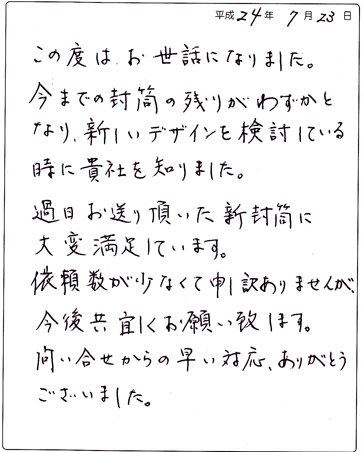 平成24年 7月23日
この度は、お世話になりました。
今までの封筒の残りがわずかと
なり、新しいデザインを検討している
時に貴社を知りました。
過日お送り頂いた新封筒に
大変満足しています。
依頼数が少なくて申し訳ありませんが、
今後共宜しくお願い致します。
問い合せからの早い対応、ありがとう
ございました。